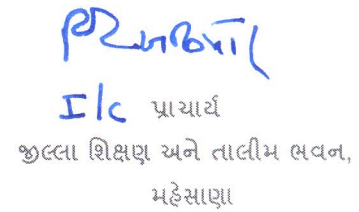 I/c પ્રાચાર્ય
જીલ્લા શિક્ષણ અને તાલીમ ભવન,
મહેસાણા